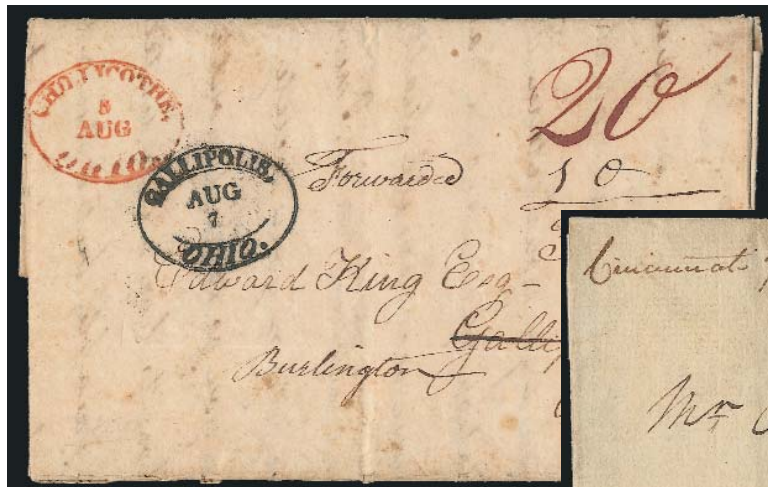 CHILLICOTHE,
5
AUG
OHIO
20
GALLIPOLIS,
AUG
7
OHIO.
Forwarded
10
Edward King Esq-
Galli
Burlington
Cincinnati
Mr